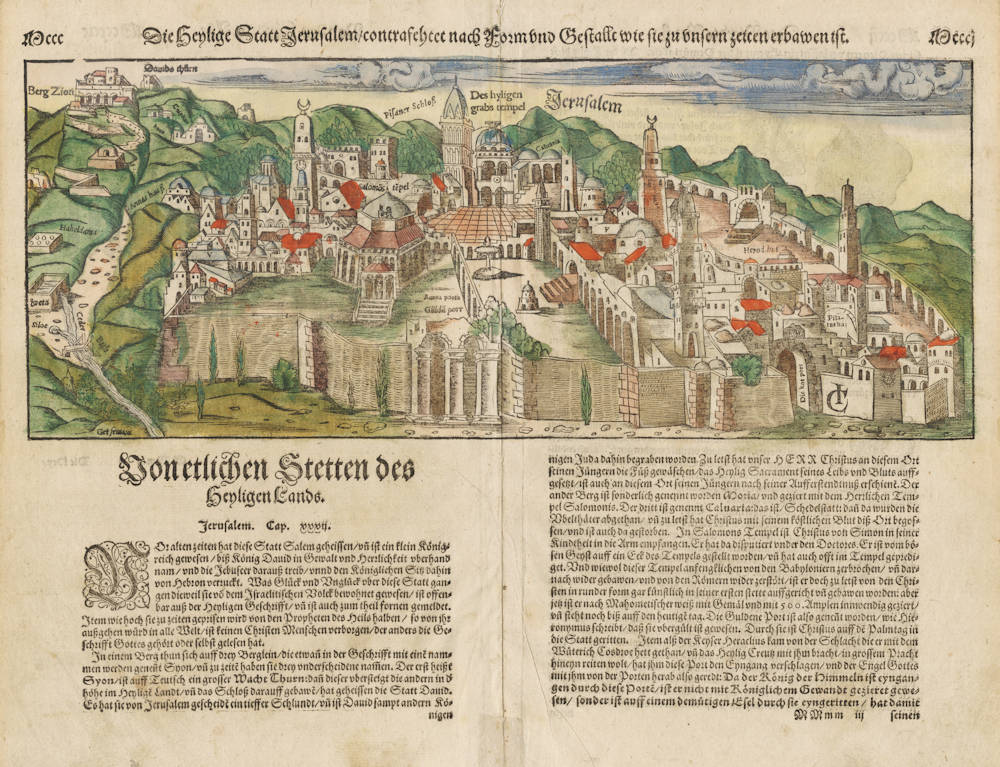 Mccc
Die Heylige Statt Jerusalem/contrafehtet nach Form vnd Gestallt wie sie zu vnsern zeiten erbawen ist.
Mcccj
Davids thurn
Berg Zion
Pisaner Schloß
Des hyligen
grabs tempel
Jerusalem
Calvaria
Salomons tēpel
Hakeldama
Herodis hus
Aurea porta
Guldē port
Pila
tus hus
Siloe
Ceder
Getsemani
Von etlichen Stetten des
Heyligen Lands.
Jerusalem. Cap. xxxij.
VOr alten zeiten hat diese Statt Salem geheissen/vñ ist ein klein König-
reich gewesen/biß König Dauid in Gewalt vnd Herrlichkeit vberhand
nam/vnd die Jebuseer darauß treib/vnnd den Königlichen Sitz dahin
von Hebron verruckt. Was Glück vnd Vnglück vber diese Statt gan-
gen dieweil sie võ dem Israelitischen Volck bewohnet gewesen/ist offen-
bar auß der Heyligen Geschrifft/vñ ist auch zum theil fornen gemeldet.
Item wie hoch sie zu zeiten geprisen wird von den Propheten des Heils halben/so von jhr
außgehen würd in alle Welt/ist keinen Christen Menschen verborgen/der anders die Ge-
schrifft Gottes gehört oder selbst gelesen hat.
In einem Berg thun sich auff drey Berglein/die etwañ in der Geschrifft mit einē nam-
men werden geneñt Syon/vñ zu zeitē haben sie drey vnderscheidene namen. Der erst heißt
Syon/ist auff Teutsch ein grosser Wacht Thurn: dañ dieser vbersteigt die andern in d
höhe im Heyligē Landt/vñ das Schloß darauff gebawē/hat geheissen die Statt Dauid.
Es hat sie von Jerusalem gescheidt ein tieffer Schlundt/vñ ist Dauid sampt andern Kö-
nigen
nigen Juda dahin begraben worden. Zu letst hat vnser HERR Christus an diesem Ort
seinen Jüngern die Füß gewäschen/das Heylig Sacrament seines Leibs vnd Bluts auff-
gesetzt/ist auch an diesem Ort seinen Jüngern nach seiner Aufferstendtnuß erschient. Der
ander Berg ist sonderlich genennt worden Moria/vnd geziert mit dem Herrlichen Tem-
pel Salomonis. Der drit ist genennt Caluaria: das ist/Schedelstatt: dañ da wurden die
Vbelthäter abgethan/vñ zu letst hat Christus mit seinem köstlichen Blut diß Ort begos-
sen/vnd ist auch da gestorben. In Salomons Tempel ist Christus von Simon in seiner
Kindtheit in die Arm empfangen. Er hat da disputiert vnder den Doctores. Er ist vom bö-
sen Geyst auff ein Eck des Tempels gestellt worden/vñ hat auch offt im Tempel gepredi-
get. Vnd wiewol dieser Tempel anfenglichen von den Babyloniern gebrochen/vñ dar-
nach wider gebawen/vnd von den Römern wider zerstört/ist er doch zu letst von den Chri-
sten in runder form gar künstlich in seiner ersten stette auffgericht vñ gebawen worden: aber
jetz ist er nach Mahometischer weiß mit Gemäl vnd mit 500. Amplen inwendig geziert/
vñ steht noch biß auff den heutigē tag. Die Guldene Port ist also genēnt worden/wie Hie-
ronymus schreibt/daß sie vbergült ist gewesen. Durch sie ist Christus auff dē Palmtag in
die Statt geritten. Item als der Keyser Heraclius kam von der Schlacht die er mit dem
Wüterich Cosdroe hett gethan/vñ das Heylig Creutz mit jhm bracht/in grossem Pracht
hineyn reiten wolt/hat jhm diese Port den Eyngang verschlagen/vnd der Engel Gottes
mit jhm von der Porten herab also geredt: Da der König der Himmeln ist eyngan-
gen durch diese Portē/ist er nicht mit Königlichem Gewandt gezieret gewe-
sen/sonder ist auff einem demütigen Esel durch sie eyngeritten/hat damit
MMmm iij
seinen